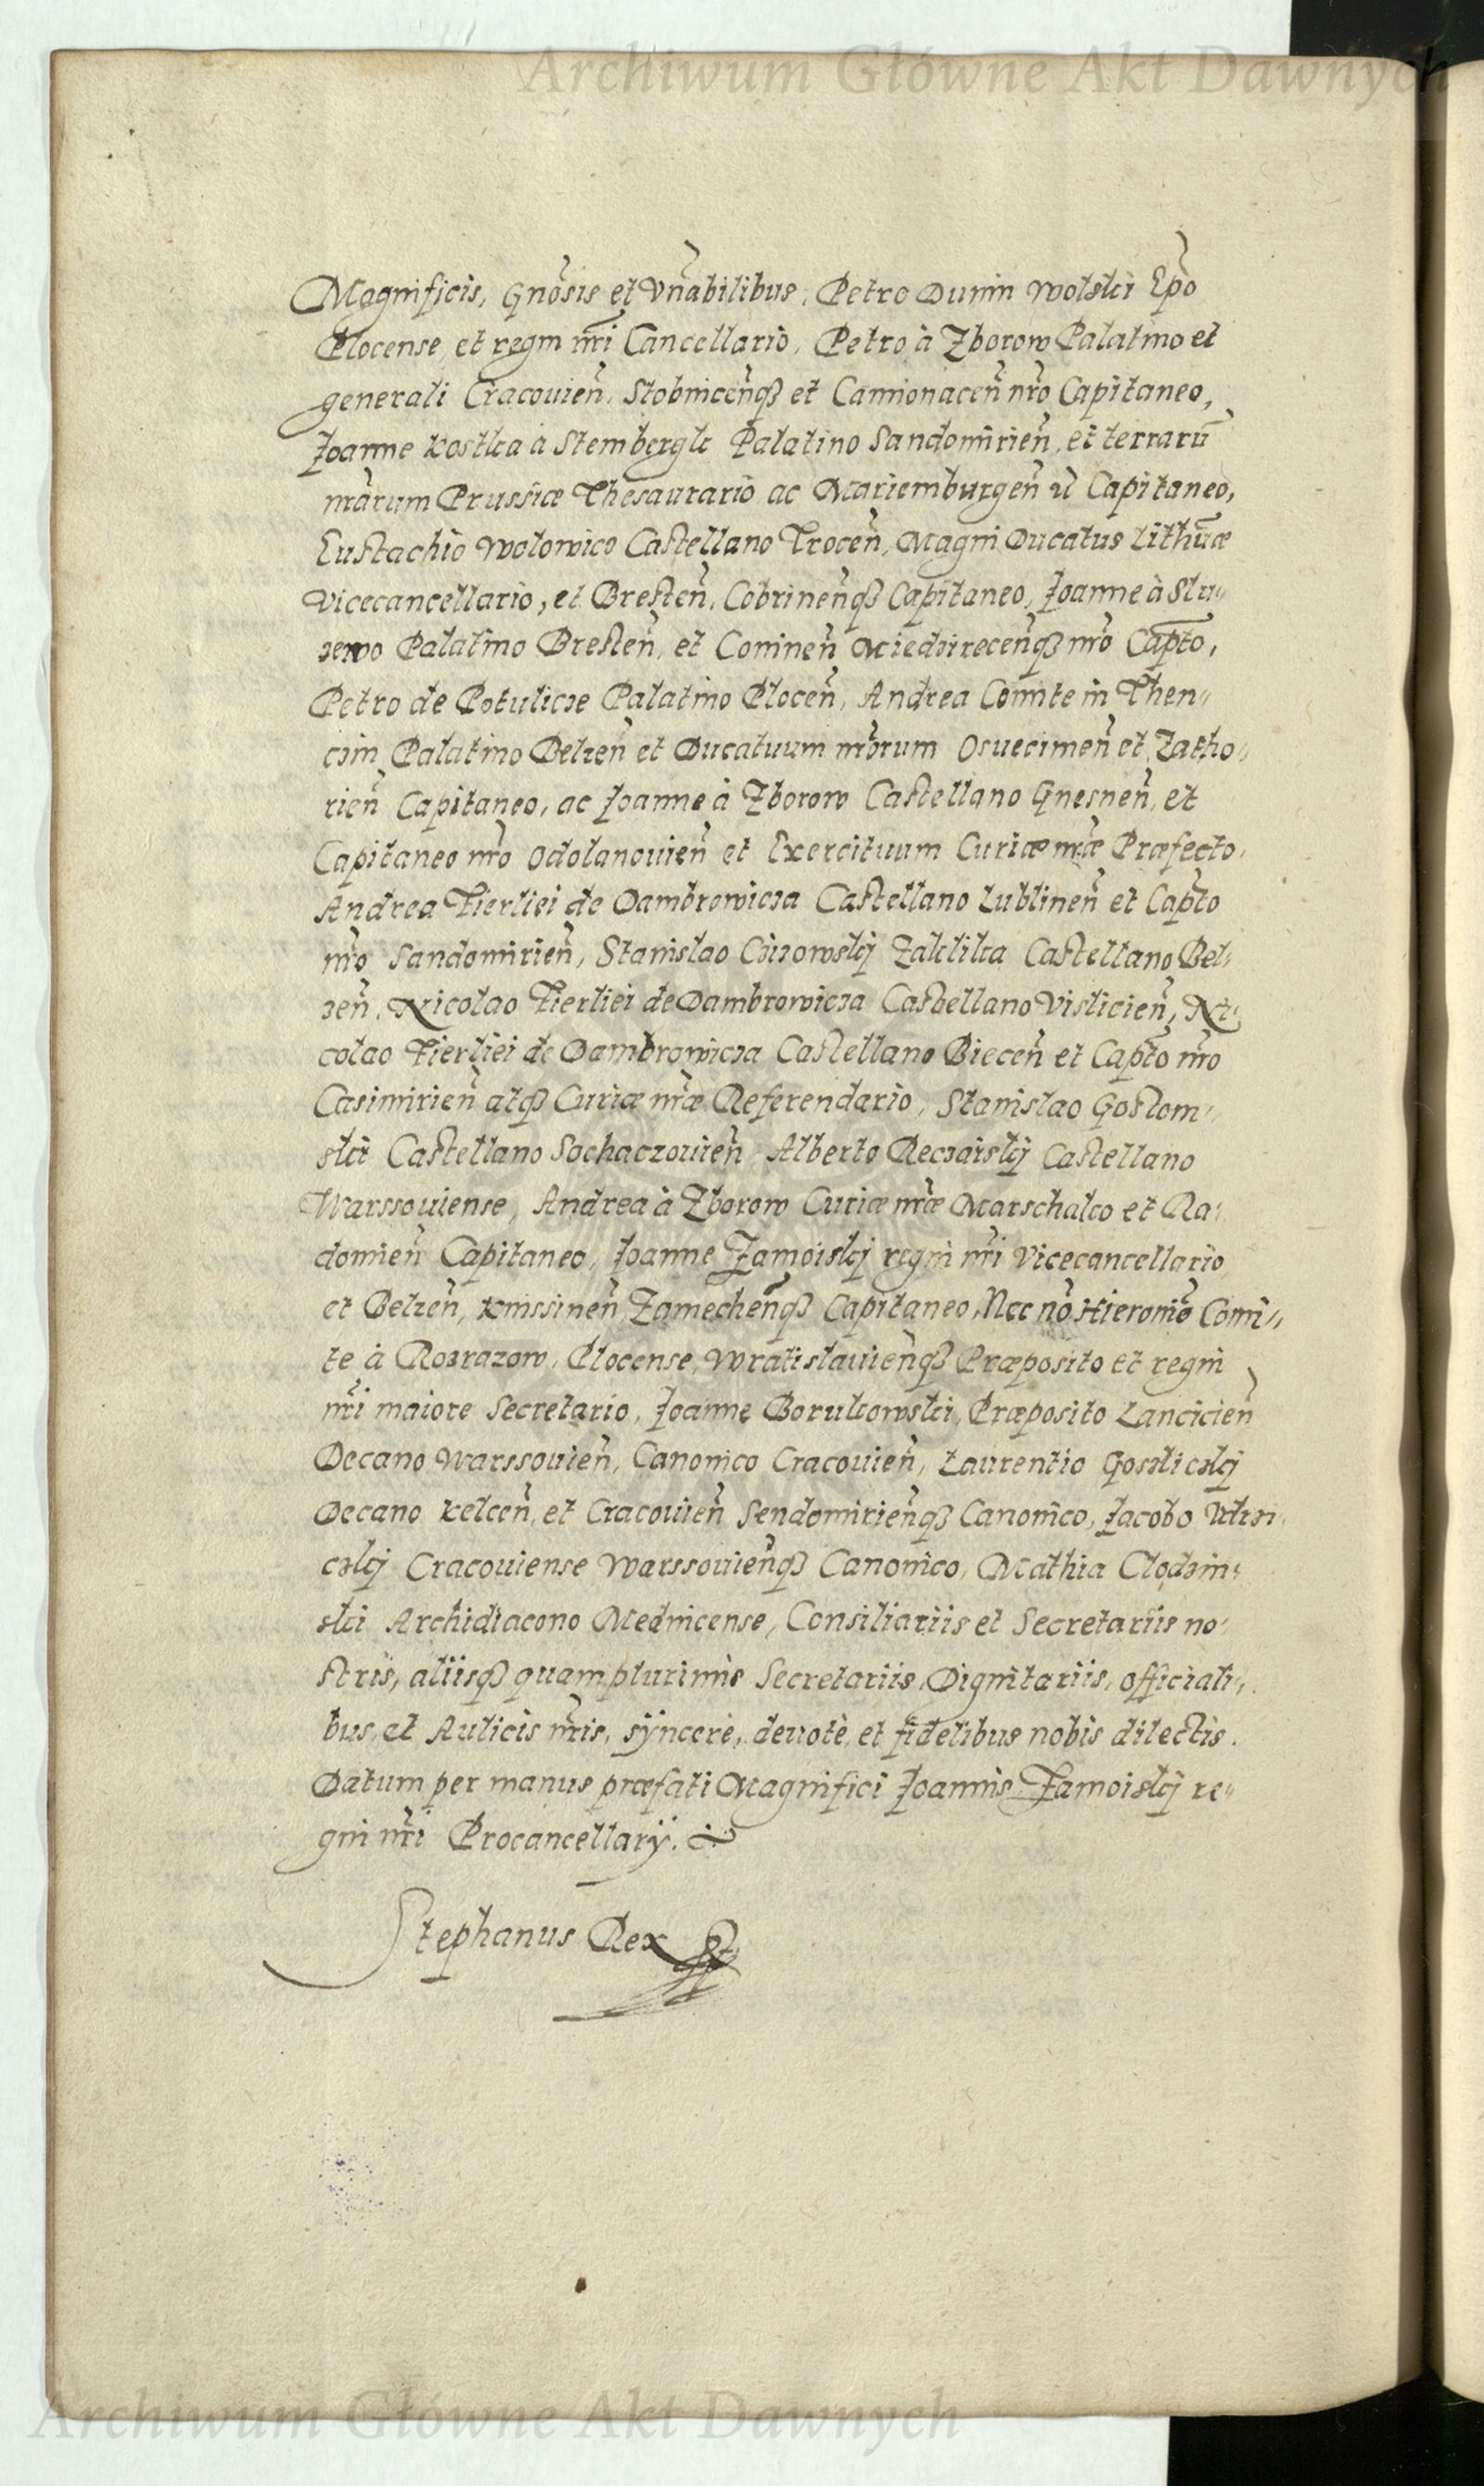 Archiwum Główne Akt Dawnych
Magnificis, Gnōsis et Vn̄abilibus, Petro Dunin Wolski Ep̄o
Plocense et regni nr̄i Cancellario, Petro à Zborow Palatino et
generali Cracouien̄, Stobnicen̄qꝫ et Camionacen̄ nr̄o Capitaneo,
Joanne Kostka a Stembergk Palatino Sandomirien̄, et terrarū
nr̄arum Prussiæ Thesaurario ac Mariemburgen̄ Capitaneo,
Eustachio Wolowico Castellano Trocen̄, Magni Ducatus Lithūæ
Vicecancellario, et Bresten̄, Cobrinen̄qꝫ Capitaneo, Joanne à Slu„
zewo Palatino Bresten̄, et Coninen̄ Miedzirecen̄qꝫ nr̄o Cap̄to,
Petro de Potulicze Palatino Plocen̄, Andrea Comite in Then„
czin Palatino Belzen̄ et Ducatuum nr̄orum Osuecimen̄ et Zatho„
rien̄ Capitaneo, ac Joanne à Zborow Castellano Gnesnen̄, et
Capitaneo nr̄o Odolanouien̄ et Exercituum Curiæ nr̄æ Præfecto,
Andrea Fierliei de Dambrowicza Castellano Lublinen̄ et Cap̄to
nr̄o Sandomirien̄, Stanislao Czizowskj Zaklika Castellano Bel„
zen̄, Nicolao Fierliei de Dambrowicza Castellano Vislicien̄, Ni„
colao Fierliei de Dambrowicza Castellano Biecen̄ et Cap̄to nr̄o
Casimirien̄ atqꝫ Curiæ nr̄æ Referendario, Stanislao Gostom„
ski Castellano Sochaczouien̄ Alberto Reczaiskj Castellano
Warssouiense, Andrea à Zborow Curiæ nr̄æ Marschalco et Ra„
domien̄ Capitaneo, Joanne Zamoiskj regni nr̄i Vicecancellario
et Belzen̄, Knissinen̄ Zamechen̄qꝫ Capitaneo, Nec nō Hieronimō Comi„
te à Rozrazow, Plocense, Wratislauien̄qꝫ Præposito et regni
nr̄i maiore Secretario, Joanne Borukowski, Præposito Lancicien̄
Decano Warssouien̄, Canonico Cracouien̄, Laurentio Goslickj
Decano Kelcen̄, et Cracouien̄ Sendomirien̄qꝫ Canonico, Jacobo
Cracouiense Warssouien̄qꝫ Canonico, Mathia Clodzin„
ski Archidiacono Mednicense, Consiliariis et Secretariis no„
stris, aliisqꝫ quamplurimis Secretariis, Dignitariis, officiali„
bus, et Aulicis nr̄is, syncerè, deuotè, et fidelibus nobis dilectis.
Datum per manus præfati Magnifici Joannis Zamoiskj re„
gni nr̄i Procancellarÿ.
Stephanus Rex
Archiwum Główne Akt Dawnych